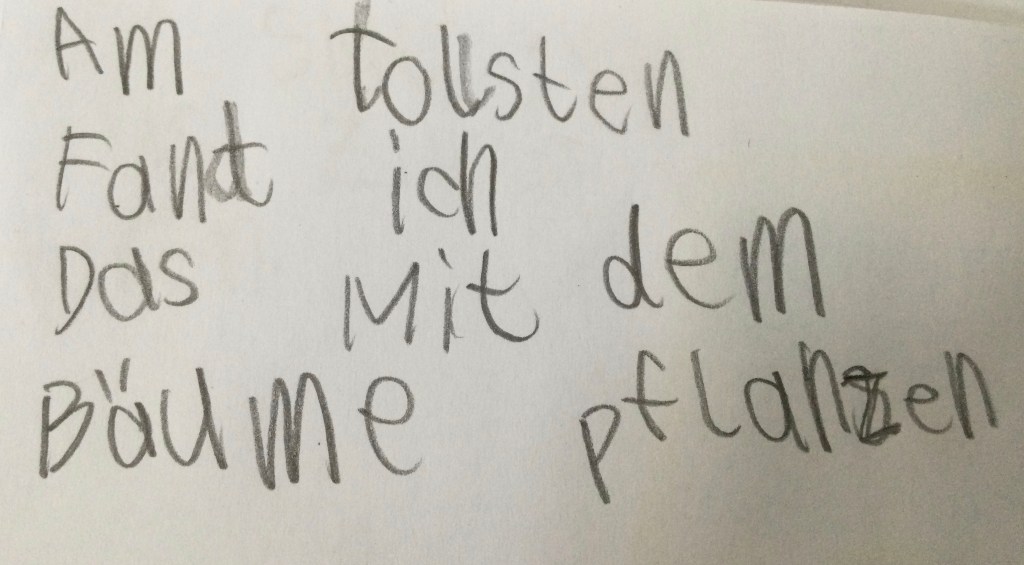 Am tollsten
Fand ich
Das Mit dem
Bäume pflanzen